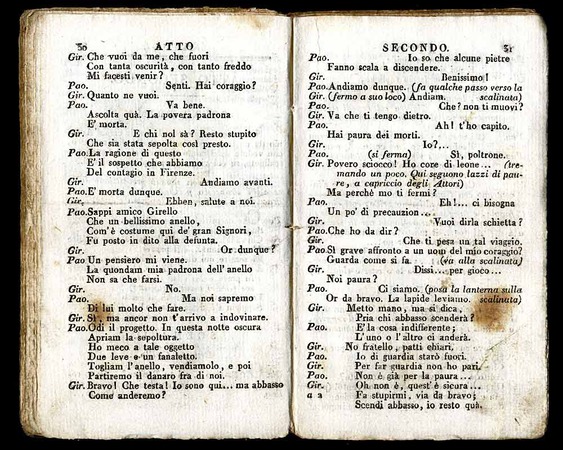 30 ATTO
Gir. Che vuoi da me, che fuori
Con tanta oscurità, con tanto freddo
Mi facesti venir?
Pao. Senti. Hai coraggio?
Gir. Quanto ne vuoi.
Pao. Va bene.
Ascolta quà. La povera padrona
E' morta.
Gir. E chi nol sà? Resto stupito
Che sia stata sepolta così presto.
Pao. La ragione di questo
E' il sospetto che abbiamo
Del contagio in Firenze.
Gir. Andiamo avanti.
Pao. E' morta dunque.
Gir. Ebben, salute a noi.
Pao. Sappi amico Girello
Che un bellissimo anello,
Com'è costume quì de' gran Signori,
Fu posto in dito alla defunta.
Gir. Or dunque?
Pao Un pensiero mi viene.
La quondam mia padrona dell' anello
Non sa che farsi.
Gir. No.
Pao. Ma noi sapremo
Di lui molto che fare.
Gir. Sì, ma ancor non t'arrivo a indovinare.
Pao. Odi il progetto. In questa notte oscura
Apriam la sepoltura.
Ho meco a tale oggetto
Due leve e un fanaletto.
Togliam l'anello, vendiamolo, e poi
Partiremo il danaro fra di noi.
Gir. Bravo! Che testa! Io sono quì... ma abbasso
Come anderemo?
SECONDO. 31
Pao. Io so che alcune pietre
Fanno scala a discendere.
Gir. Benissimo!
Pao. Andiamo dunque. (fa qualche passo verso la
Gir. (fermo a suo loco) Andiam. scalinata)
Pao. Che? non ti muovi?
Gir. Va che ti tengo dietro.
Pao. Ah! t'ho capito.
Hai paura dei morti.
Gir. Io?...
Pao. (si ferma) Sì, poltrone.
Gir. Povero sciocco! Ho core di leone... (tre-
mando un poco. Quì seguono lazzi di pau-
re, a capriccio degli Attori)
Ma perchè mo ti fermi?
Pao. Eh!... ci bisogna
Un po' di precauzion...
Gir. Vuoi dirla schietta?
Pao. Che ho da dir?
Gir. Che ti pesa un tal viaggio.
Pao Sì grave affronto a un uom del mio coraggio?
Guarda come si fa (va alla scalinata)
Gir. Dissi... per gioco...
Noi paura?
Pao. Ci siamo. (posa la lanterna sulla
Or da bravo. La lapide leviamo. scalinata)
Gir. Metto mano, ma si dica,
Pria chi abbasso scenderà?
Pao. E' la cosa indifferente;
L'uno o l'altro ci anderà.
Gir. No fratello, patti chiari.
Pao. Io di guardia starò fuori.
Gir. Per far guardia non ho pari.
Pao. Non è già per la paura...
Gir. Oh non è, quest' è sicura...
a 2 Fa stupirmi, via da bravo;
Scendi abbasso, io resto quà.